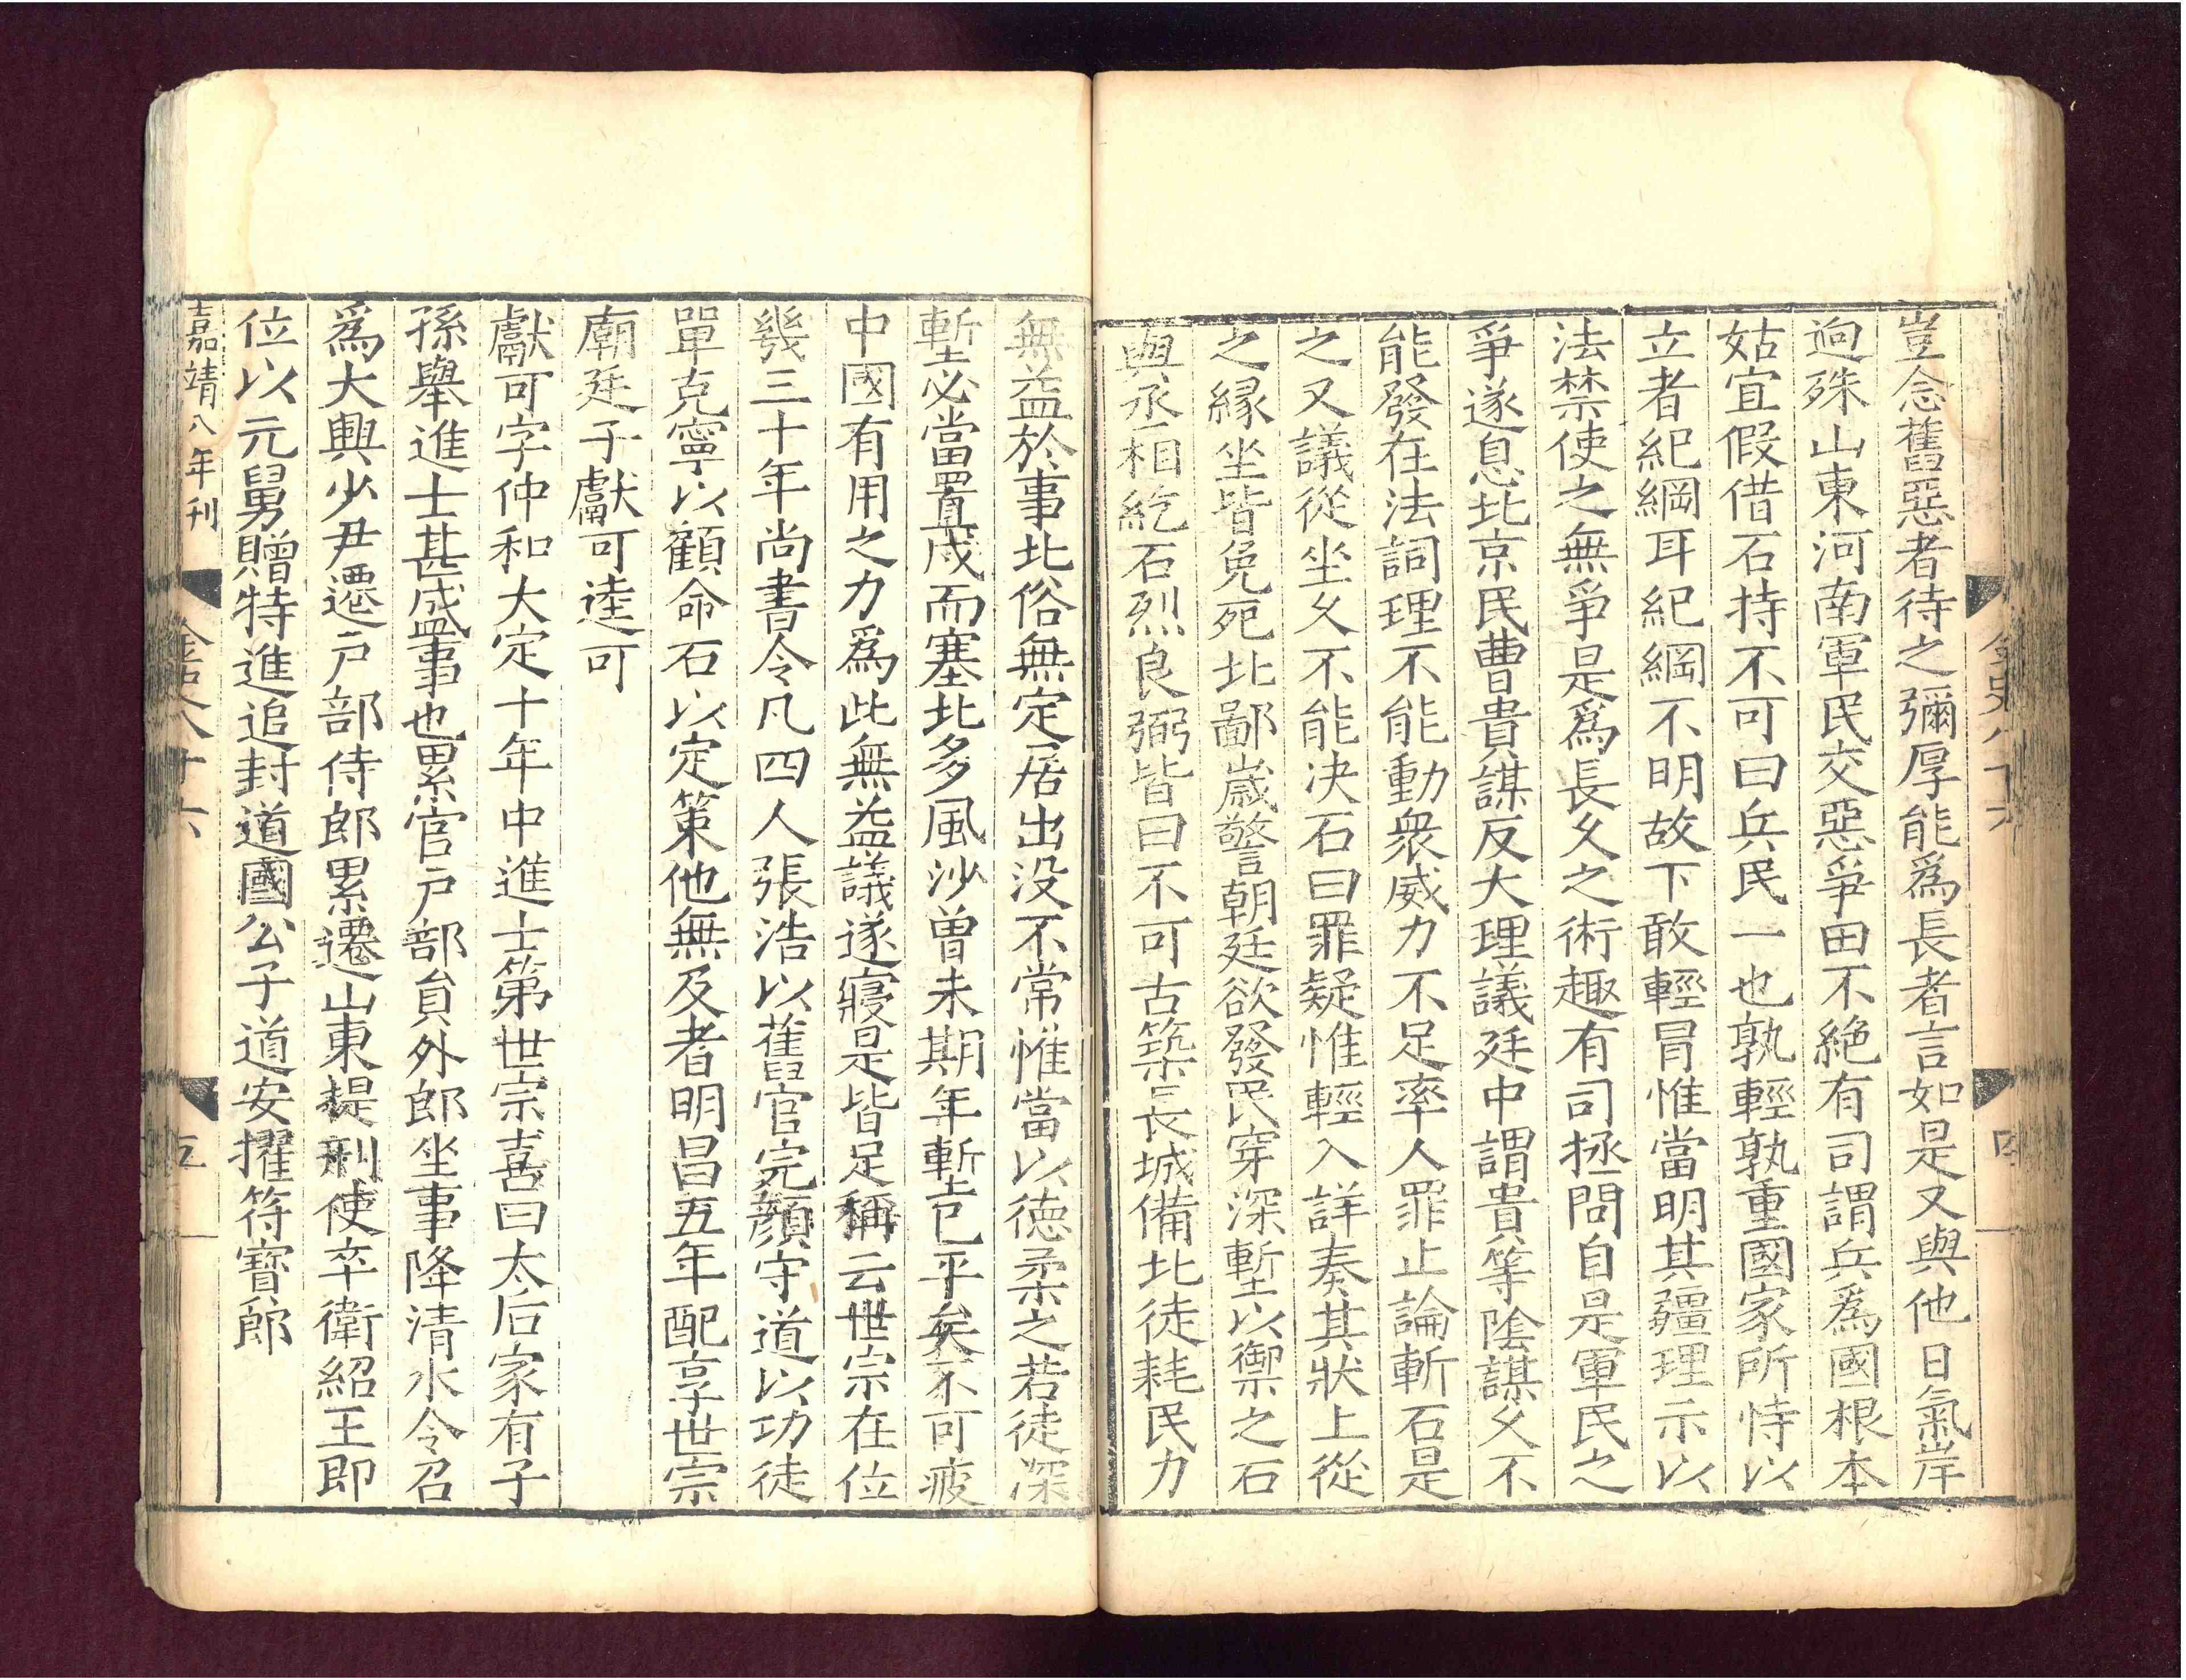 豈念舊惡者待之彌厚能爲長者言如是又與他日氣岸
逈殊山東河南軍民交惡爭田不絶有司謂兵爲國根本
姑宜假借石持不可曰兵民一也孰輕孰重國家所恃以
立者紀綱耳紀綱不明故下敢輕冐惟當明其疆理示以
法禁使之無爭是爲長久之術趣有司拯問自是軍民之
爭遂息北京民曹貴謀反大理議廷中謂貴等陰謀久不
能發在法詞理不能動衆威力不足率人罪止論斬石是
之又議從坐久不能决石曰罪疑惟輕入詳奏其狀上從
之縁坐皆免死北鄙歳警朝廷欲發民穿深塹以禦之石
與丞相紇石烈良弼皆曰不可古築長城備北徒耗民力
金史八十六
四
無益於事北俗無定居出没不常惟當以徳柔之若徒深
塹必當置戍而塞北多風沙曾未期年塹已平矣不可疲
中國有用之力爲此無益議遂寢是皆足稱云世宗在位
幾三十年尚書令凡四人張浩以舊官完顔守道以功徒
單克寧以顧命石以定策他無及者明昌五年配享世宗
廟廷子獻可逵可
獻可字仲和大定十年中進士第世宗喜曰太后家有子
孫舉進士甚盛事也累官户部員外郎坐事降清水令召
爲大興少尹遷户部侍郎累遷山東提刑使卒衛紹王即
位以元舅贈特進追封道國公子道安擢符寶郎
嘉靖八年刊
金史八十六
五